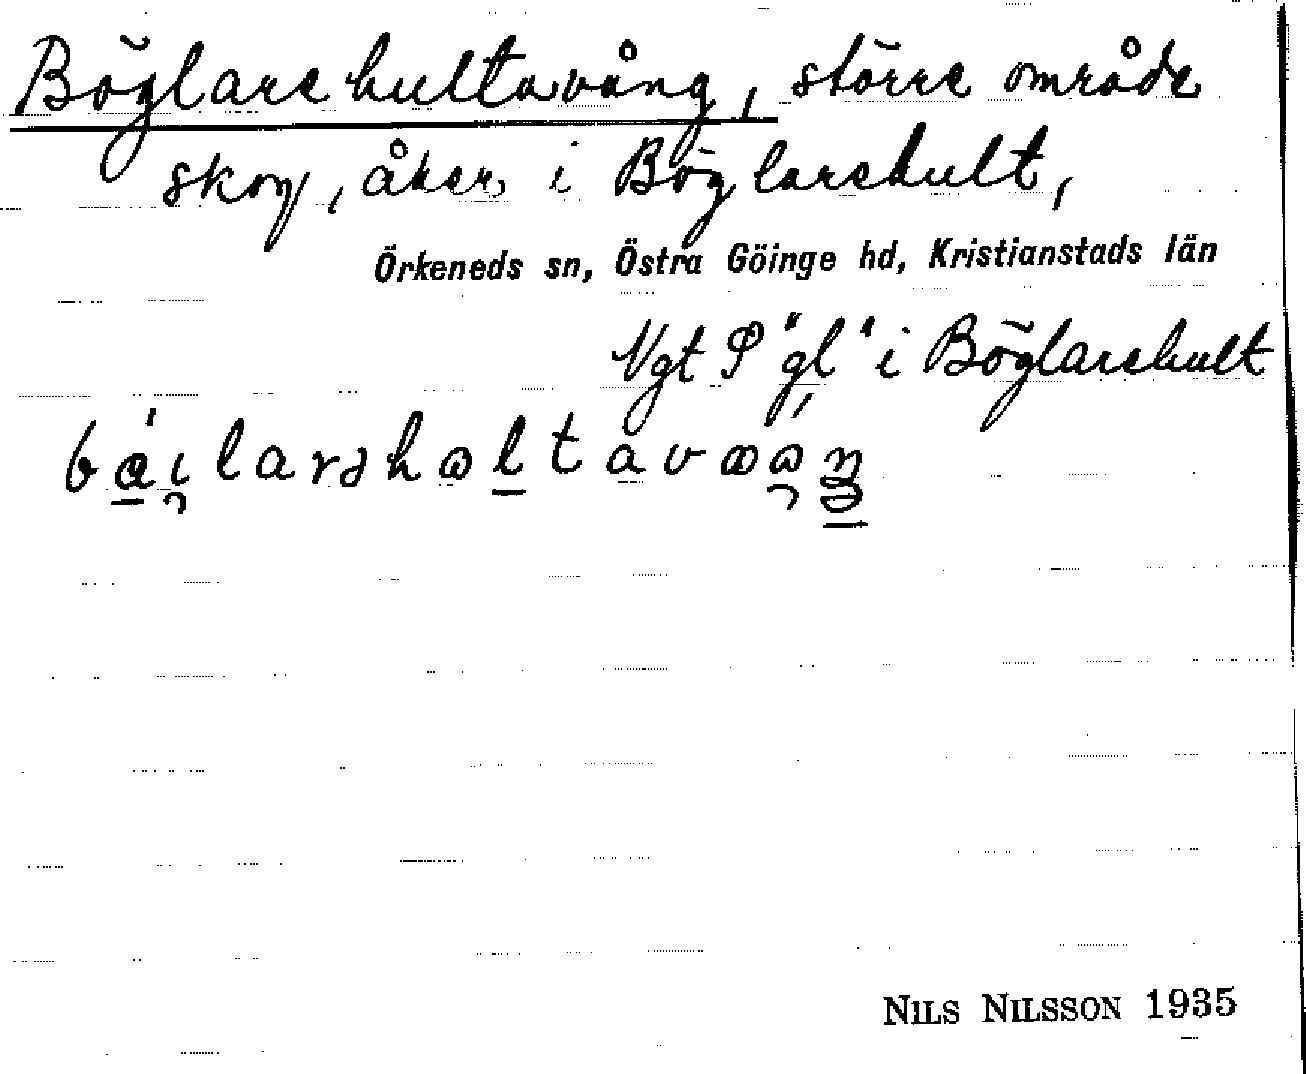 Böglarehultavång, större område
skog, åker i Böglarehult,
Örkeneds sn, Östra Göinge hd, Kristianstads län
Vgt P "gl" i Böglarehult
NILS NILSSON 1935